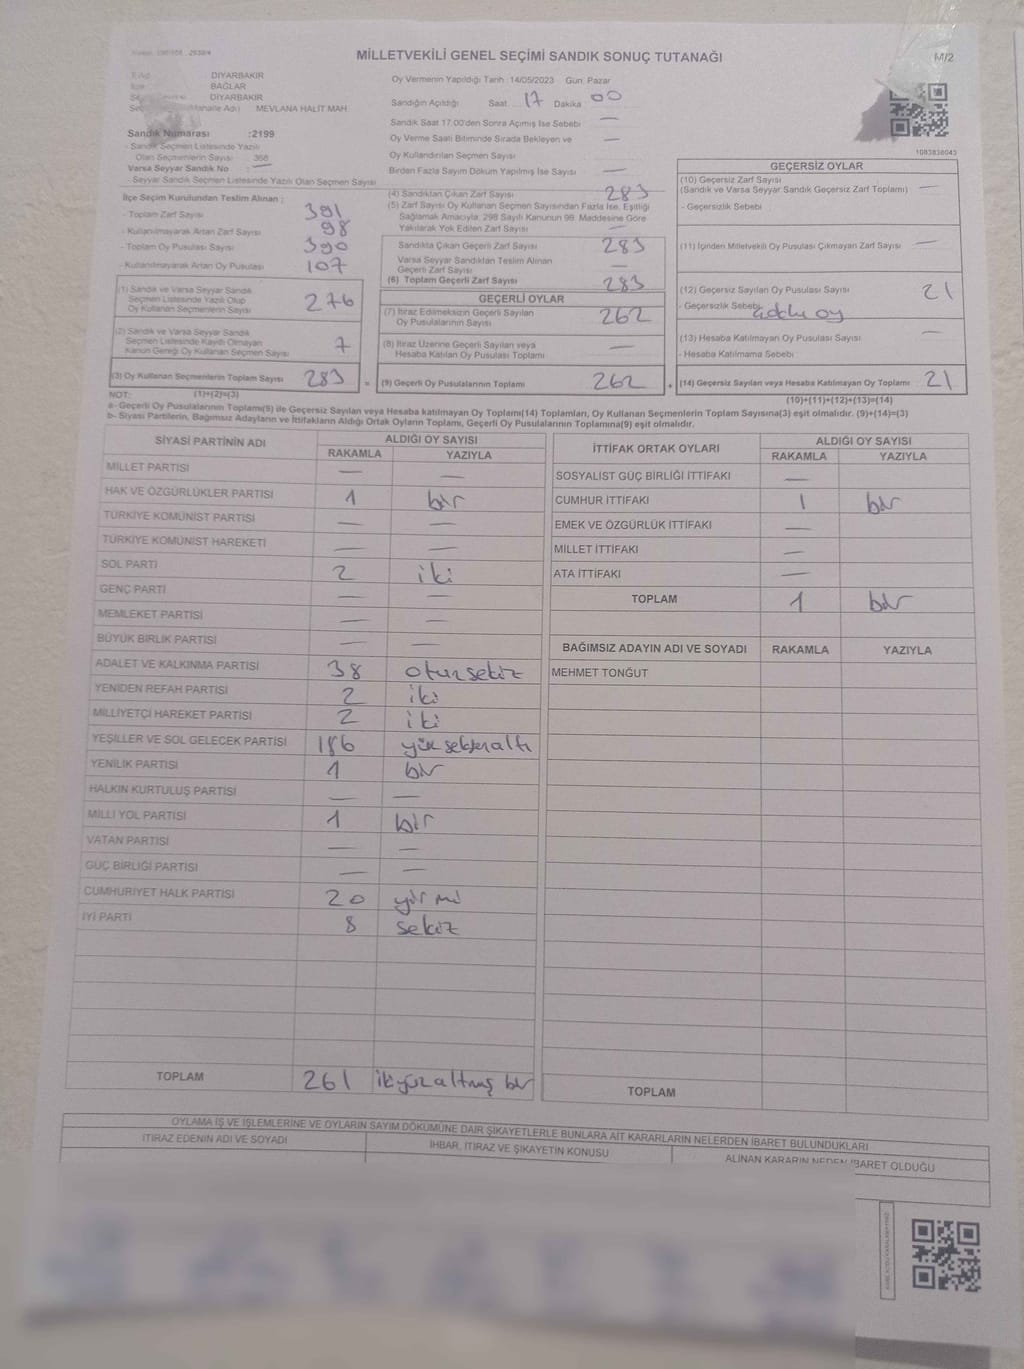 MİLLETVEKİLİ GENEL SEÇİMİ SANDIK SONUÇ TUTANAĞI
M/2
DİYARBAKIR
BAĞLAR
DİYARBAKIR
Mahalle Adı MEVLANA HALİT MAH
Sandık Numarası :2199
- Sandık Seçmen Listesinde Yazılı
Olan Seçmenlerin Sayısı 368
Varsa Seyyar Sandık No —
- Seyyar Sandık Seçmen Listesinde Yazılı Olan Seçmen Sayısı
Oy Vermenin Yapıldığı Tarih :14/05/2023 Gün Pazar
Sandığın Açıldığı Saat 17 Dakika 00
Sandık Saat 17:00'den Sonra Açılmış İse Sebebi —
Oy Verme Saati Bitiminde Sırada Bekleyen ve —
Oy Kullandırılan Seçmen Sayısı
Birden Fazla Sayım Döküm Yapılmış İse Sayısı —
1083838043
İlçe Seçim Kurulundan Teslim Alınan ;
- Toplam Zarf Sayısı 391
- Kullanılmayarak Artan Zarf Sayısı 98
- Toplam Oy Pusulası Sayısı 390
- Kullanılmayarak Artan Oy Pusulası 107
(1) Sandık ve Varsa Seyyar Sandık
Seçmen Listesinde Yazılı Olup
Oy Kullanan Seçmenlerin Sayısı 276
(2) Sandık ve Varsa Seyyar Sandık
Seçmen Listesinde Kayıtlı Olmayan
Kanun Gereği Oy Kullanan Seçmen Sayısı 7
(3) Oy Kullanan Seçmenlerin Toplam Sayısı 283 =
(4) Sandıktan Çıkan Zarf Sayısı 283
(5) Zarf Sayısı Oy Kullanan Seçmen Sayısından Fazla İse, Eşitliği
Sağlamak Amacıyla, 298 Sayılı Kanunun 98. Maddesine Göre
Yakılarak Yok Edilen Zarf Sayısı —
Sandıkta Çıkan Geçerli Zarf Sayısı 283
Varsa Seyyar Sandıktan Teslim Alınan
Geçerli Zarf Sayısı —
(6) Toplam Geçerli Zarf Sayısı 283
GEÇERLİ OYLAR
(7) İtiraz Edilmeksizin Geçerli Sayılan
Oy Pusulalarının Sayısı 262
(8) İtiraz Üzerine Geçerli Sayılan veya
Hesaba Katılan Oy Pusulası Toplamı —
(9) Geçerli Oy Pusulalarının Toplamı 262 +
GEÇERSİZ OYLAR
(10) Geçersiz Zarf Sayısı
(Sandık ve Varsa Seyyar Sandık Geçersiz Zarf Toplamı) —
- Geçersizlik Sebebi
(11) İçinden Milletvekili Oy Pusulası Çıkmayan Zarf Sayısı —
(12) Geçersiz Sayılan Oy Pusulası Sayısı 21
- Geçersizlik Sebebi oy
(13) Hesaba Katılmayan Oy Pusulası Sayısı —
- Hesaba Katılmama Sebebi
(14) Geçersiz Sayılan veya Hesaba Katılmayan Oy Toplamı 21
NOT: (1)+(2)=(3)
(10)+(11)+(12)+(13)=(14)
a- Geçerli Oy Pusulalarının Toplamı(9) ile Geçersiz Sayılan veya Hesaba katılmayan Oy Toplamı(14) Toplamları, Oy Kullanan Seçmenlerin Toplam Sayısına(3) eşit olmalıdır. (9)+(14)=(3)
b- Siyasi Partilerin, Bağımsız Adayların ve İttifakların Aldığı Ortak Oyların Toplamı, Geçerli Oy Pusulalarının Toplamına(9) eşit olmalıdır.
SİYASİ PARTİNİN ADI ALDIĞI OY SAYISI
RAKAMLA YAZIYLA
MİLLET PARTİSİ — —
HAK VE ÖZGÜRLÜKLER PARTİSİ 1 bir
TÜRKİYE KOMÜNİST PARTİSİ — —
TÜRKİYE KOMÜNİST HAREKETİ — —
SOL PARTİ 2 iki
GENÇ PARTİ — —
MEMLEKET PARTİSİ — —
BÜYÜK BİRLİK PARTİSİ — —
ADALET VE KALKINMA PARTİSİ 38 otuzsekiz
YENİDEN REFAH PARTİSİ 2 iki
MİLLİYETÇİ HAREKET PARTİSİ 2 iki
YEŞİLLER VE SOL GELECEK PARTİSİ 186 yüzseksenaltı
YENİLİK PARTİSİ 1 bir
HALKIN KURTULUŞ PARTİSİ — —
MİLLİ YOL PARTİSİ 1 bir
VATAN PARTİSİ — —
GÜÇ BİRLİĞİ PARTİSİ — —
CUMHURİYET HALK PARTİSİ 20 yirmi
İYİ PARTİ 8 sekiz
TOPLAM 261 ikiyüzaltmış bir
İTTİFAK ORTAK OYLARI ALDIĞI OY SAYISI
RAKAMLA YAZIYLA
SOSYALİST GÜÇ BİRLİĞİ İTTİFAKI —
CUMHUR İTTİFAKI 1 bir
EMEK VE ÖZGÜRLÜK İTTİFAKI —
MİLLET İTTİFAKI —
ATA İTTİFAKI —
TOPLAM 1 bir
BAĞIMSIZ ADAYIN ADI VE SOYADI RAKAMLA YAZIYLA
MEHMET TONĞUT
TOPLAM
OYLAMA İŞ VE İŞLEMLERİNE VE OYLARIN SAYIM DÖKÜMÜNE DAİR ŞİKAYETLERLE BUNLARA AİT KARARLARIN NELERDEN İBARET BULUNDUKLARI
İTİRAZ EDENİN ADI VE SOYADI İHBAR, İTİRAZ VE ŞİKAYETİN KONUSU ALINAN KARARIN NEDEN İBARET OLDUĞU